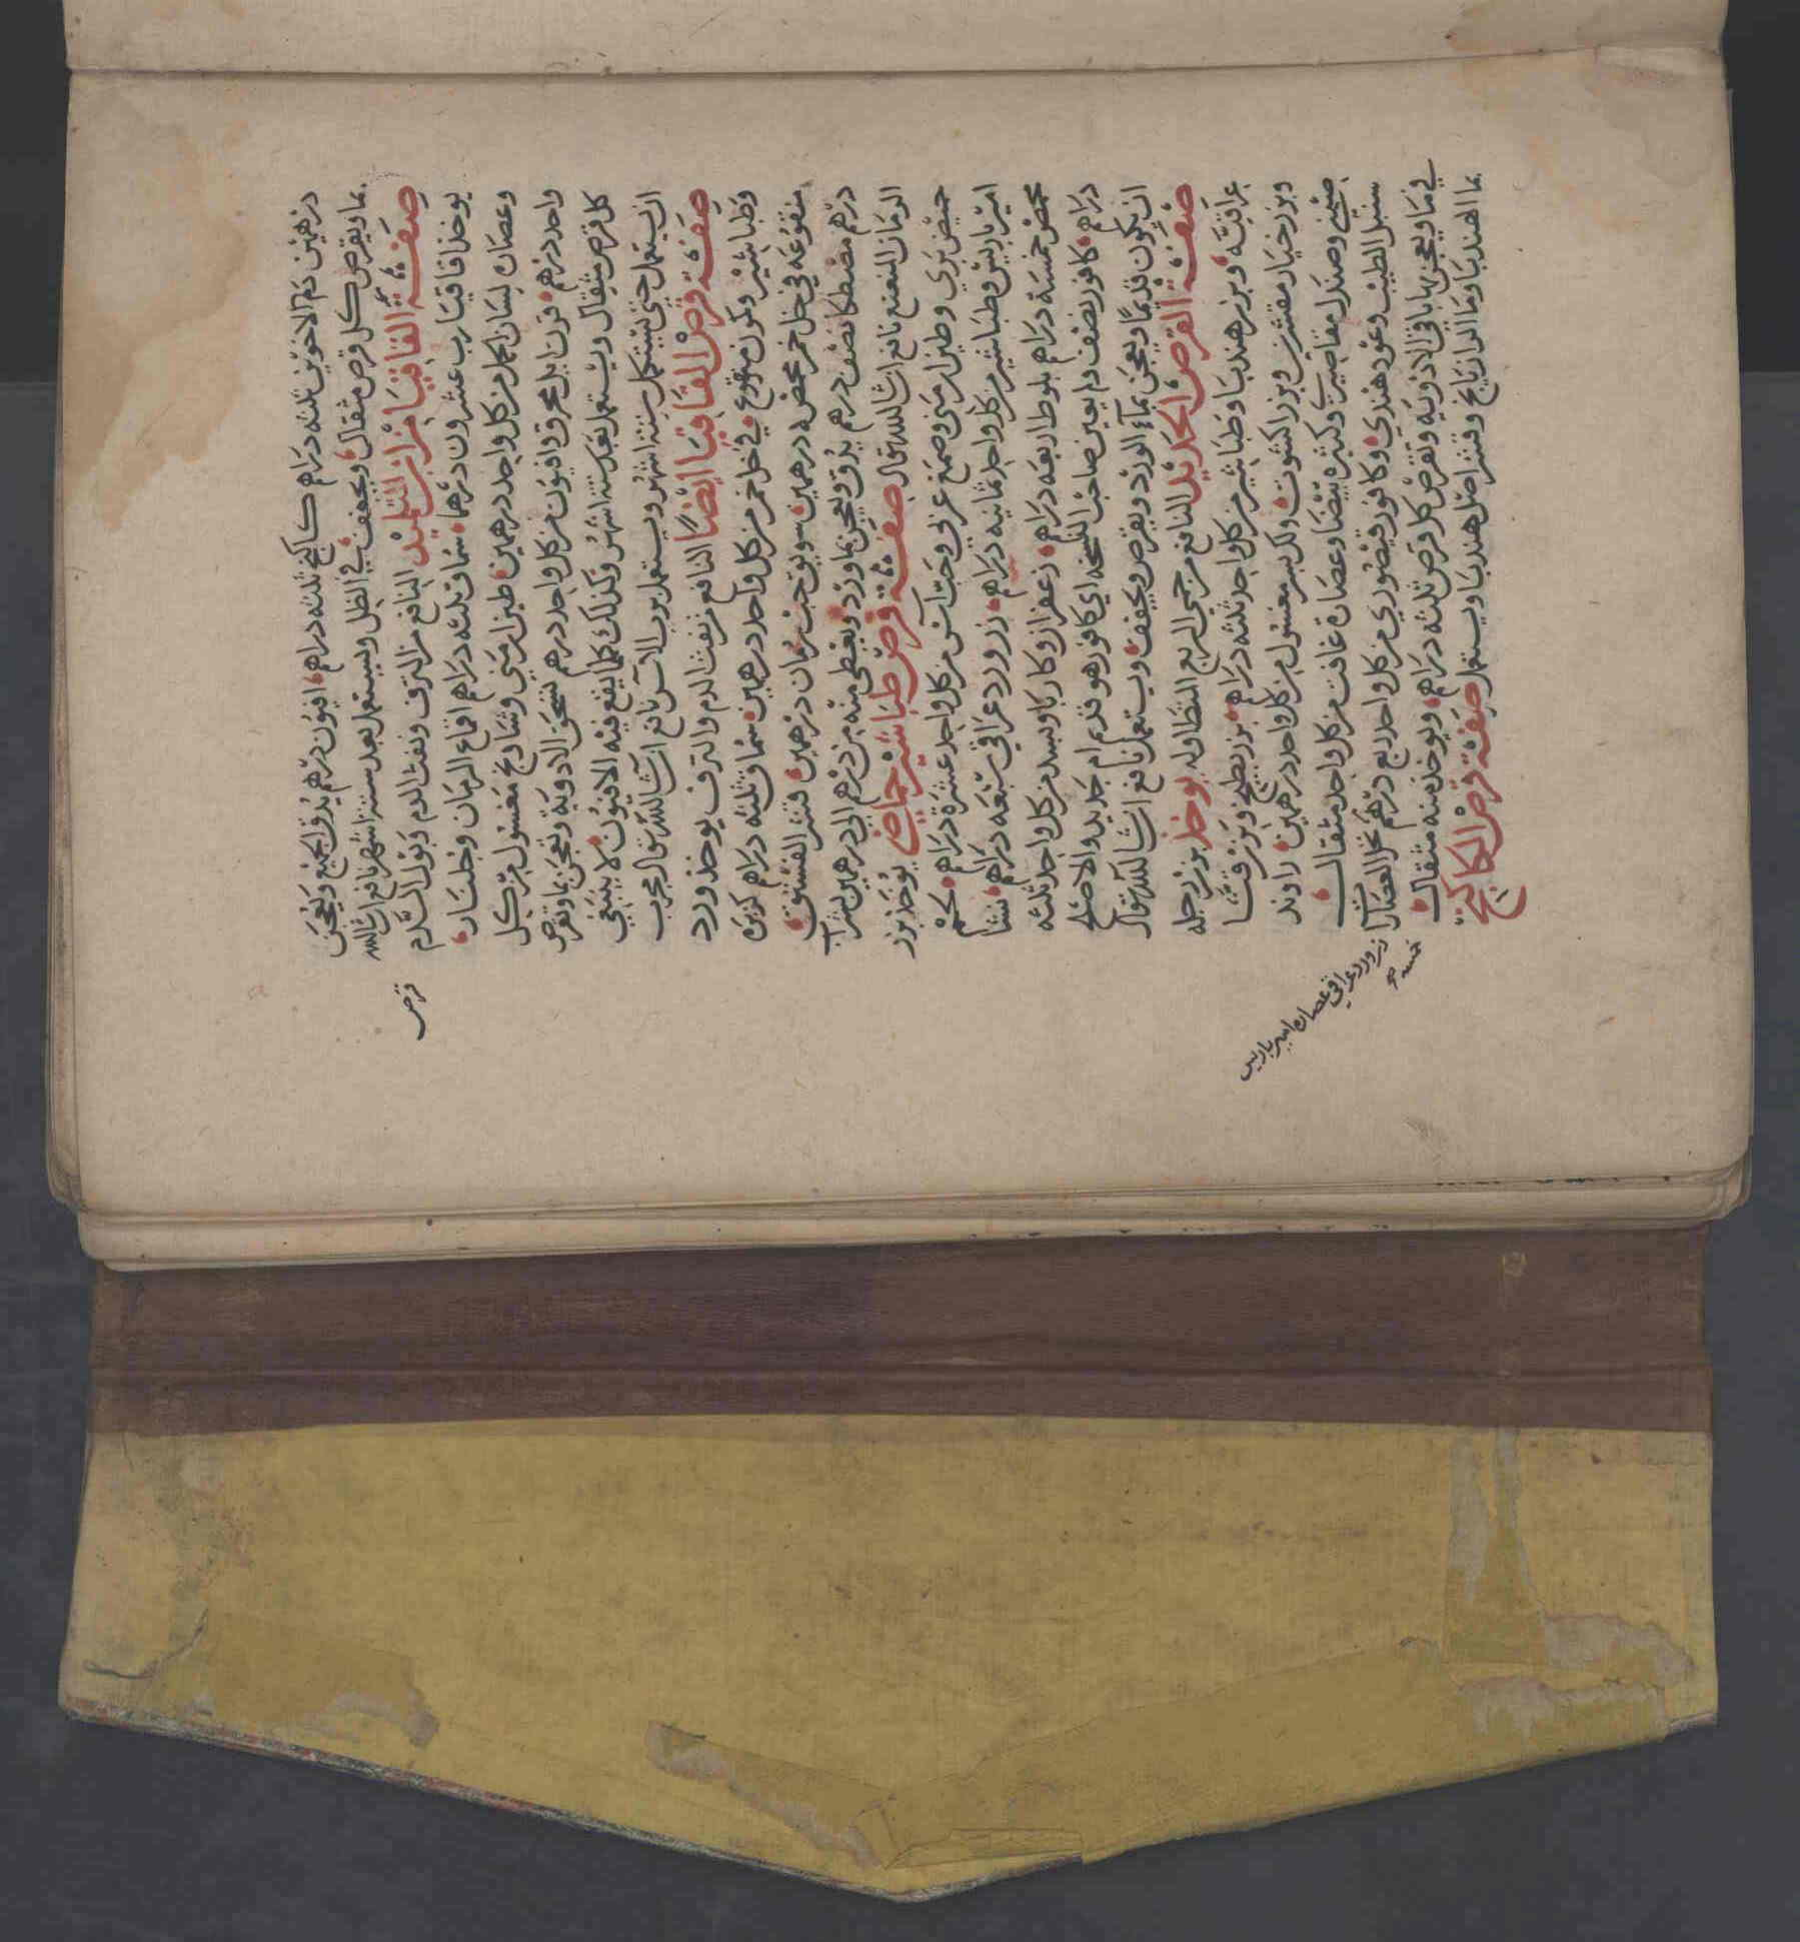 درهمين دم الاخوين ثلثه دراهم كاكنج ثلثه دراهم افيون درهم يدق الجميع ويعجن
بما ويقرص كل قرص مثقال ويجفف في الظل ويستعمل بعد ستة اشهر نافع انشاالله
صفة القاقيا من ابن التلميذ النافع من النزف ونفث الدم وبول الدم
يوخذ اقاقيا رب عشرون درهما سماق ثلثه دراهم اقماع الرمان وجلنار
وعصاره لسان الحمل من كل واحد درهمين طين ارمني وشادنج مغسول من كل
واحد درهم قرن ايل محرق وافيون من كل واحد درهم تسحق الادوية وتعجن بما وتقرص
كل قرص مثقال ويستعمل بعد ستة اشهر وكذلك كلما يقع فيه الافيون لا ينبغي
ان يستعمل حتي تستكمل ستة اشهر ويستعمل برب الاس نافع انشاالله تعالى مجرب
صفة قرص القاقيا ايضا النافع من نفث الدم والنزف يوخذ ورد
وطباشير وكمون منقوع في خل خمر من كل واحد درهمين سماق ثلثه دراهم كزبره
منقوعه في خل خمر محمصه درهمين سويق حب رمان درهمين قشر الفستق
درهم مصطكا نصف درهم يدق ويعجن بما ورد ويعطي منه من درهم الي درهمين بشراب
الرمان المنعنع نافع انشاالله تعالى صفة قرص طباشير حماض يوخذ بزر
حميض بري وطين ارمني وصمغ عربي وحب آس من كل واحد عشرة دراهم لحم
امير باريس وطباشير من كل واحد ثمانيه دراهم زر ورد عراقي سبعه دراهم نشا
محمص خمسة دراهم بلوط اربعه دراهم زعفران وكاربا وبسد من كل واحد ثلثه
دراهم كافور نصف دم يعين صاحب النسخه اي كافور هو قديم ام جديد والاصلح
ان يكون قديما ويعجن بماء الورد ويقرص ويجفف ويستعمل نافع انشاالله تعالى
صفة القرص الجديد النافع من حمي الربع المتطاوله يوخذ بزر رجله
عراقيه وبزر هندبا وطباشير من كل واحد ثلثه دراهم بزر بطيخ وبزر قثا
وبزر خيار مقشر وبزر اكشوت ولك بسر مغسول من كل واحد درهمين راوند
صيني وصندل مقاصيري وكثيره بيضا وعصارة غافت من كل واحد مثقال
سنبل الطيب وعود هندي وكافور قيصوري من كل واحد ربع درهم تحل العصاره
في ما ويعجن بها باقي الادويه وتقرص كل قرص ثلثه دراهم ويوخذ منه مثقال
بما الهندبا وما الرازيانج وقشر اصل هندبا ويستعمل صفة قرص الكاكنج
زر ورد عراقي عصاره امير باريس
خمسه
قرص